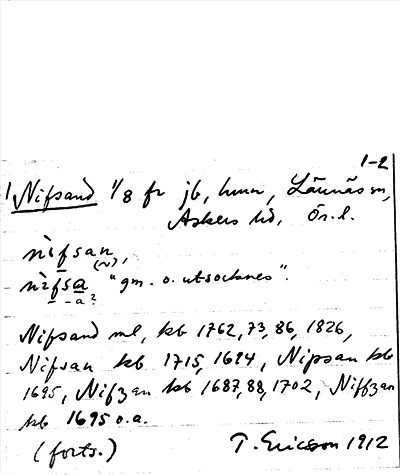 1-2
1 Nifsand 1/8 fr jb, hmn, Lännäs sn,
Askers hd, Ör.l.
nìfsan,
(~)
nìfsa "gm. o. utsocknes".
-a?
Nifsand ml, kb 1762, 73, 86, 1826,
Nifsan kb 1715, 1694, Nipsan kb
1695, Nifzan kb 1687, 88, 1702, Niffzan
kb 1695 o.a.
(forts.) T. Ericsson 1912